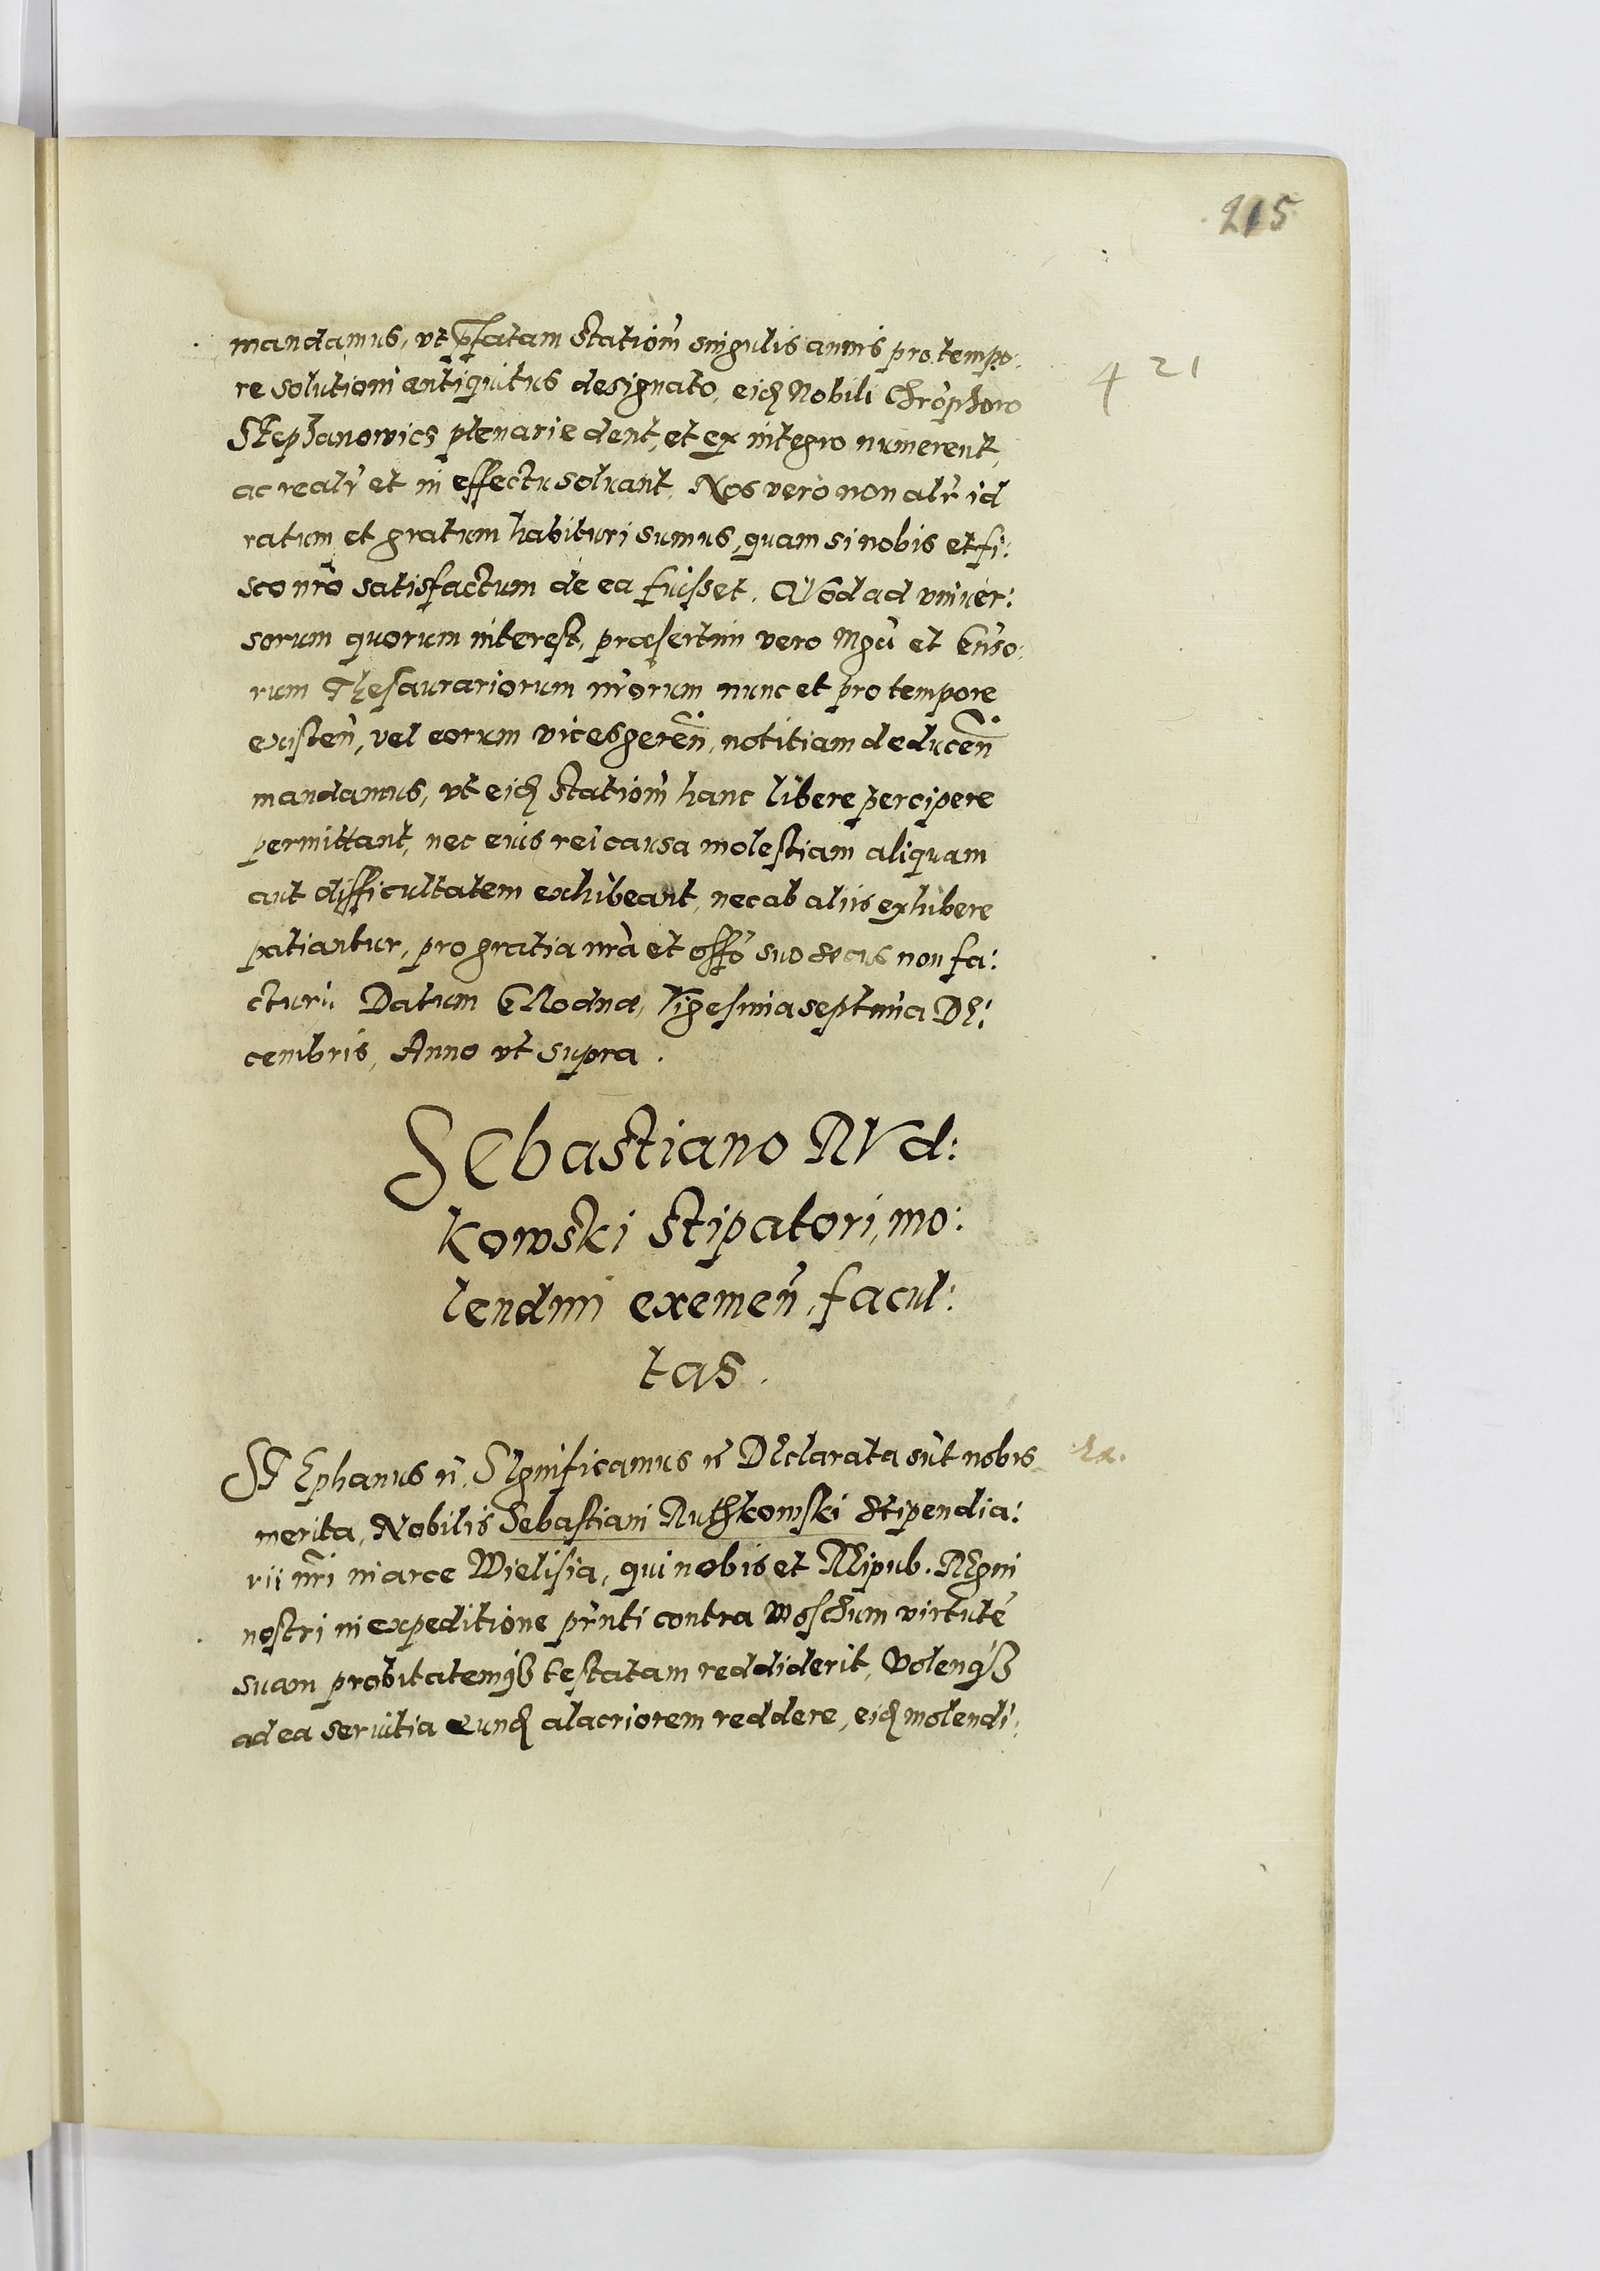 215
mandamus, vt pfatam station̄ singulis annis pro tempo:
4 21
re solutioni antiquitus designato, eidȝ Nobili Chrõphoro
Stephanowicz plenarie dent, et ex integro numerent,
ac realr̃ et in effectu soluant. Nos vero non alr̃ id
ratum et gratum habituri sumus, quam si nobis et fi:
sco nr̃o satisfactum de ea fuisset. QVod ad vniuer:
sorum quorum interest, præsertim vero Mgci et Gñso:
rum Thesaurariorum nr̃orum nunc et pro tempore
existen̄, vel eorum vicesgeren̄, notitiam deducen̄
mandamus, vt eidȝ station̄ hanc libere percipere
permittant, nec eius rei causa molestiam aliquam
aut difficultatem exhibeant, nec ab aliis exhibere
patiantur, pro gratia nr̃a et offõ suo secus non fa:
cturi. Datum GRodnæ, Vigesima septima DE:
cembris, Anno vt supra.
SEbastiano RVd:
kowski stipatori, mo:
lendini exemen̄, facul:
tas.
STEphanus etc̃. SIgnificamus etc̃ DEclarata sũt nobis
merita, Nobilis Sebastiani Ruthkowski stipendia:
rii nr̃i in arce Wielisia, qui nobis et REipub. REgni
nostri in expeditione pr̃nti contra Moschum virtutẽ
suam probitatemqȝ testatam reddiderit, Volenqȝ
ad ea seruitia eundȝ alacriorem reddere, eidȝ molendi: